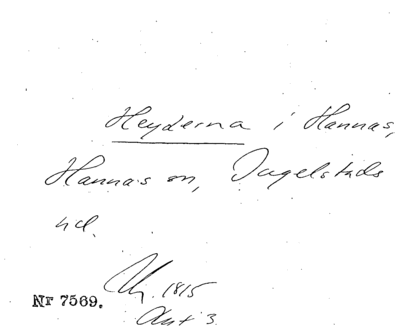 Heyderna i Hannas,
Hannas sn, Ingelstads
hd.
1815
Nr 7569.
Akt 3